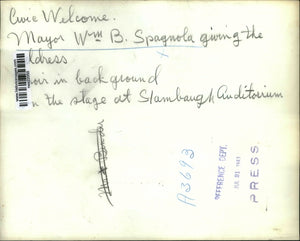 Civic Welcome.
Mayor Wm B. Spagnola giving the
ddress
oir in background
n the stage at Stambaugh Auditorium
A3693
REFERENCE DEPT.
PRESS